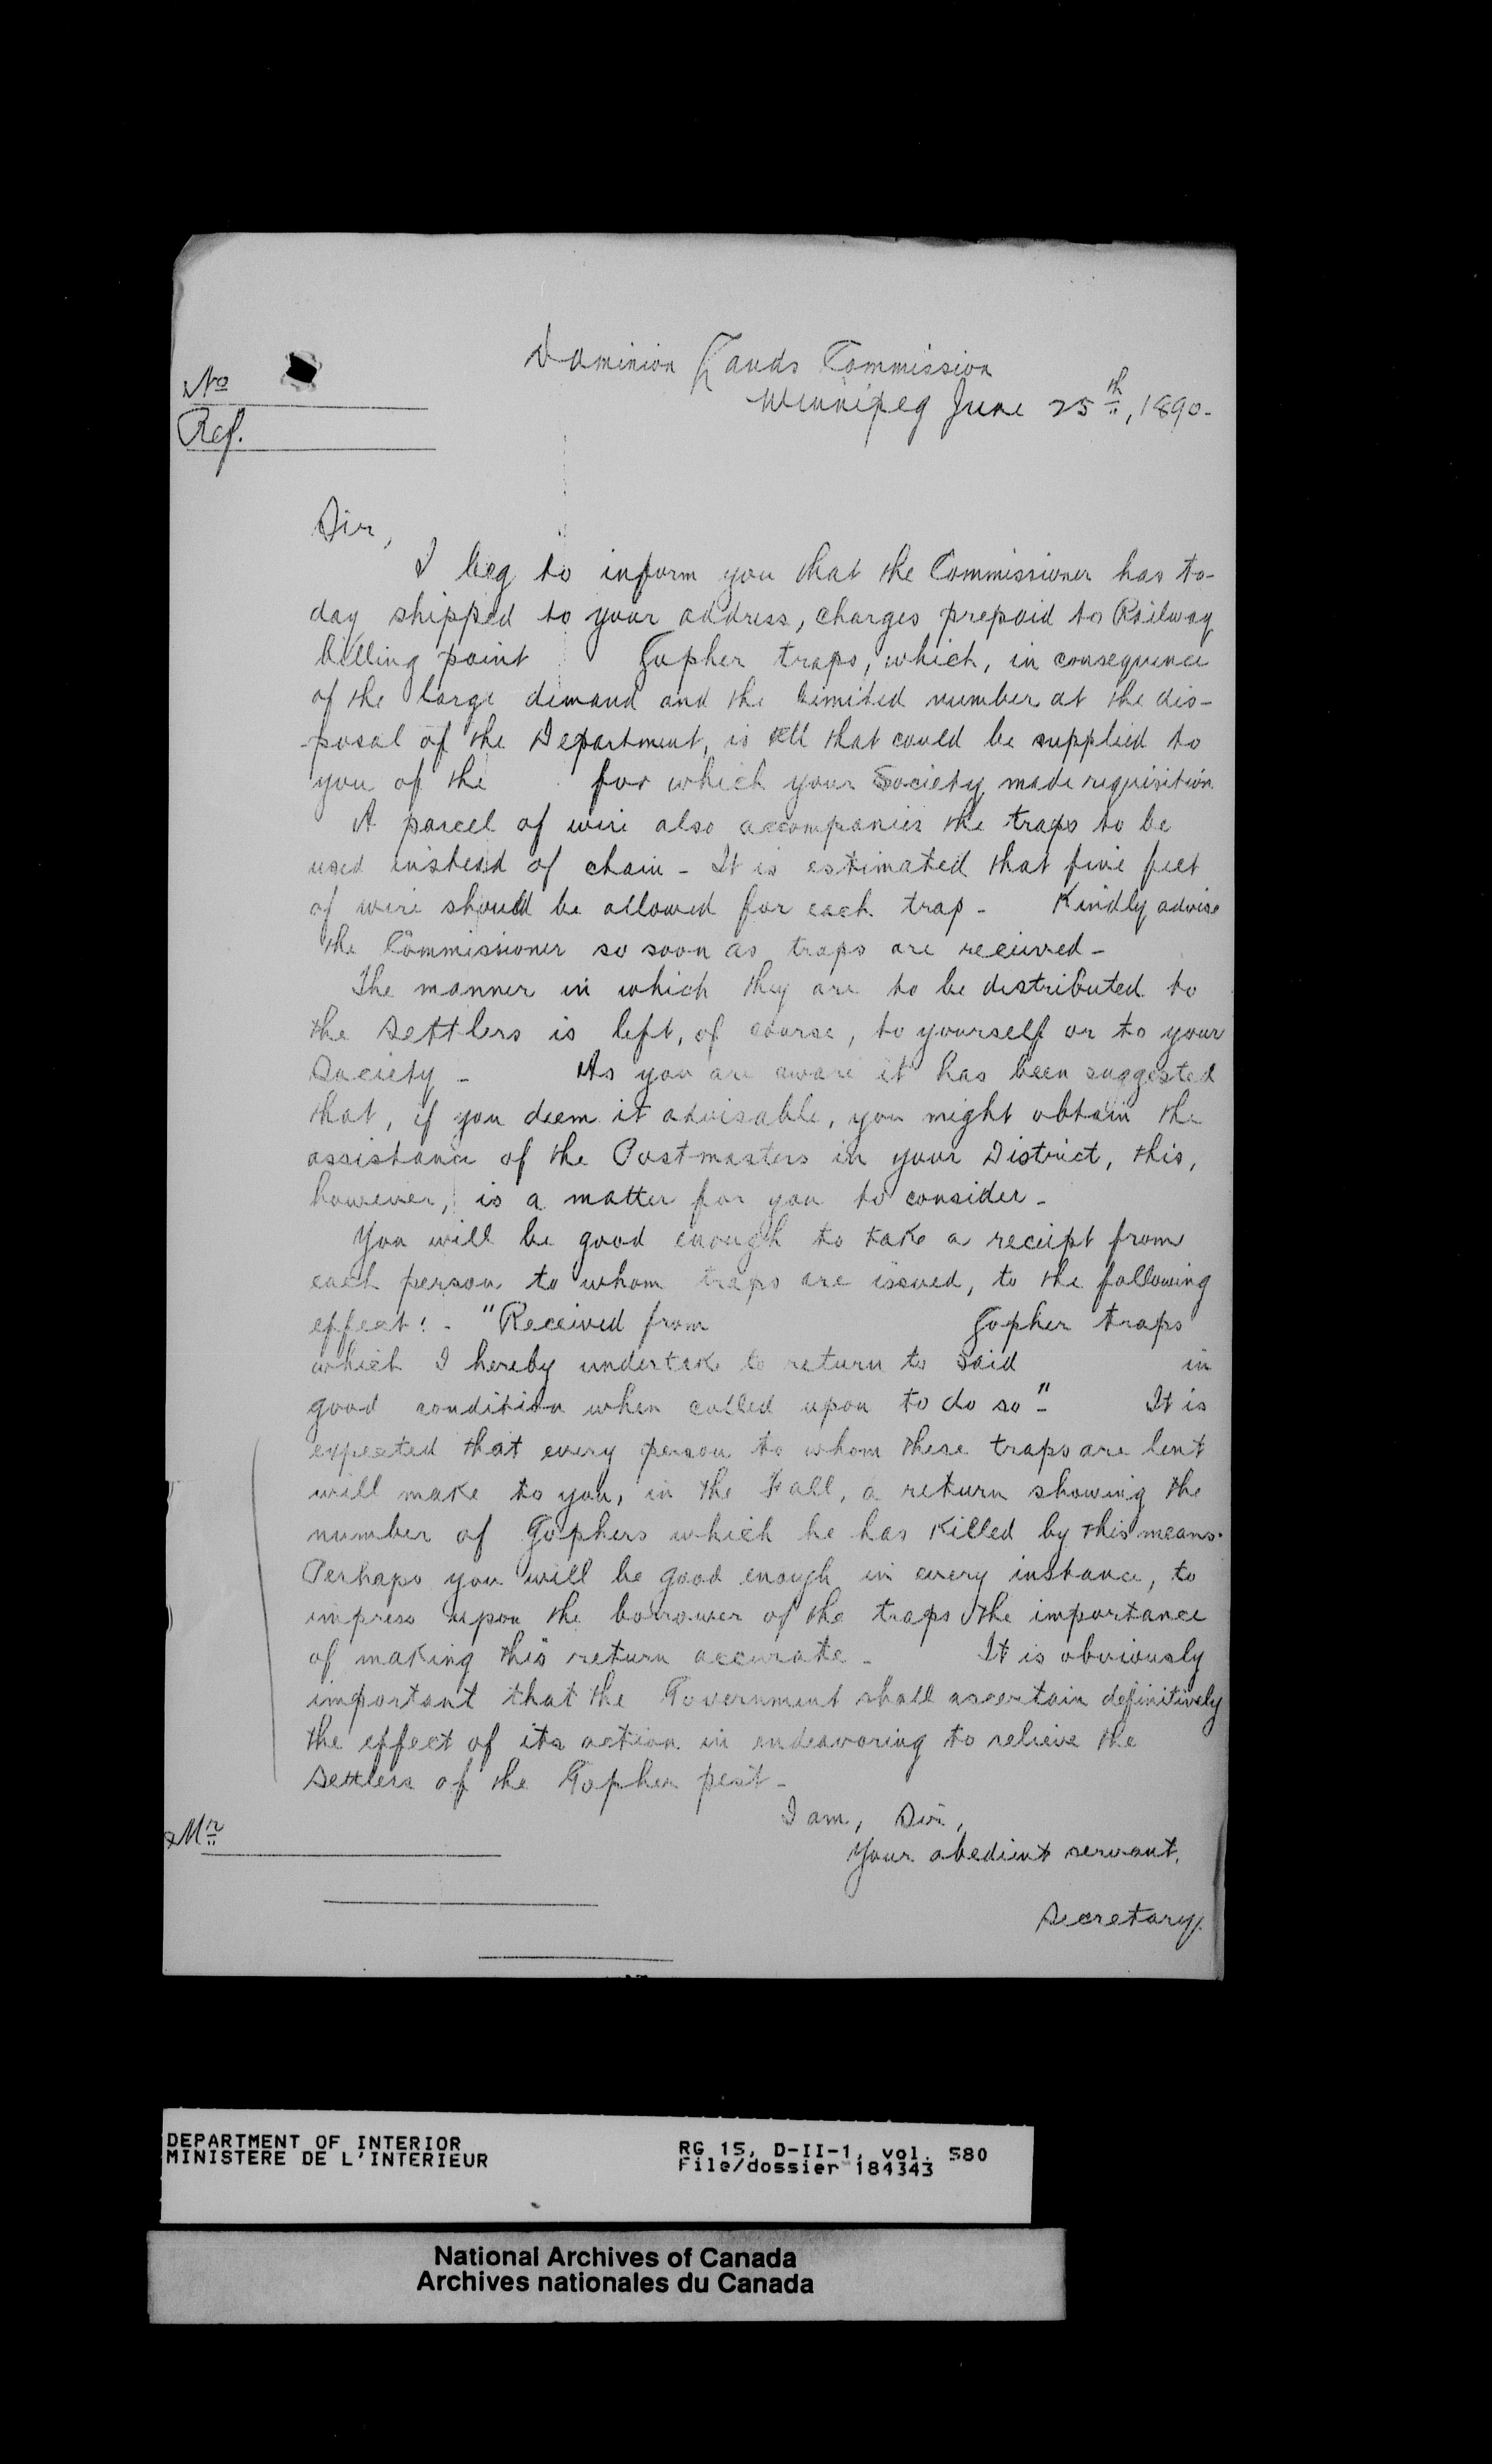 Dominion Lands Commission
Winnipeg June 25th, 1890-
No
Ref.
Sir,
I beg to inform you that the Commissioner has to-
day shipped to your address, charges prepaid to Railway
billing point Gopher traps, which, in consequence
of the large demand and the limited number at the dis-
posal of the Department, is all that could be supplied to
you of the for which your Society made requisition
A parcel of wire also accompanies the traps to be
used instead of chain - It is estimated that five feet
of wire should be allowed for each trap - Kindly advise
the Commissioner so soon as traps are received -
The manner in which they are to be distributed to
the Settlers is left, of course, to yourself or to your
Society - As you are aware it has been suggested
that, if you deem it advisable, you might obtain the
assistance of the Postmasters in your District, this,
however, is a matter for you to consider -
You will be good enough to take a receipt from
each person to whom traps are issued, to the following
effect: - "Received from Gopher traps
which I hereby undertake to return to said in
good condition when called upon to do so" - It is
expected that every person to whom these traps are lent
will make to you, in the Fall, a return showing the
number of Gophers which he has killed by this means.
Perhaps you will be good enough in every instance, to
impress upon the borrower of the traps the importance
of making this return accurate - It is obviously
important that the Government shall ascertain definitively
the effect of its action in endeavoring to relieve the
Settlers of the Gopher pest -
I am, Sir,
Your obedient servant,
Secretary.
Mr
DEPARTMENT OF INTERIOR
MINISTERE DE L'INTERIEUR
RG 15, D-II-1, vol. 580
File/dossier 184343
National Archives of Canada
Archives nationales du Canada